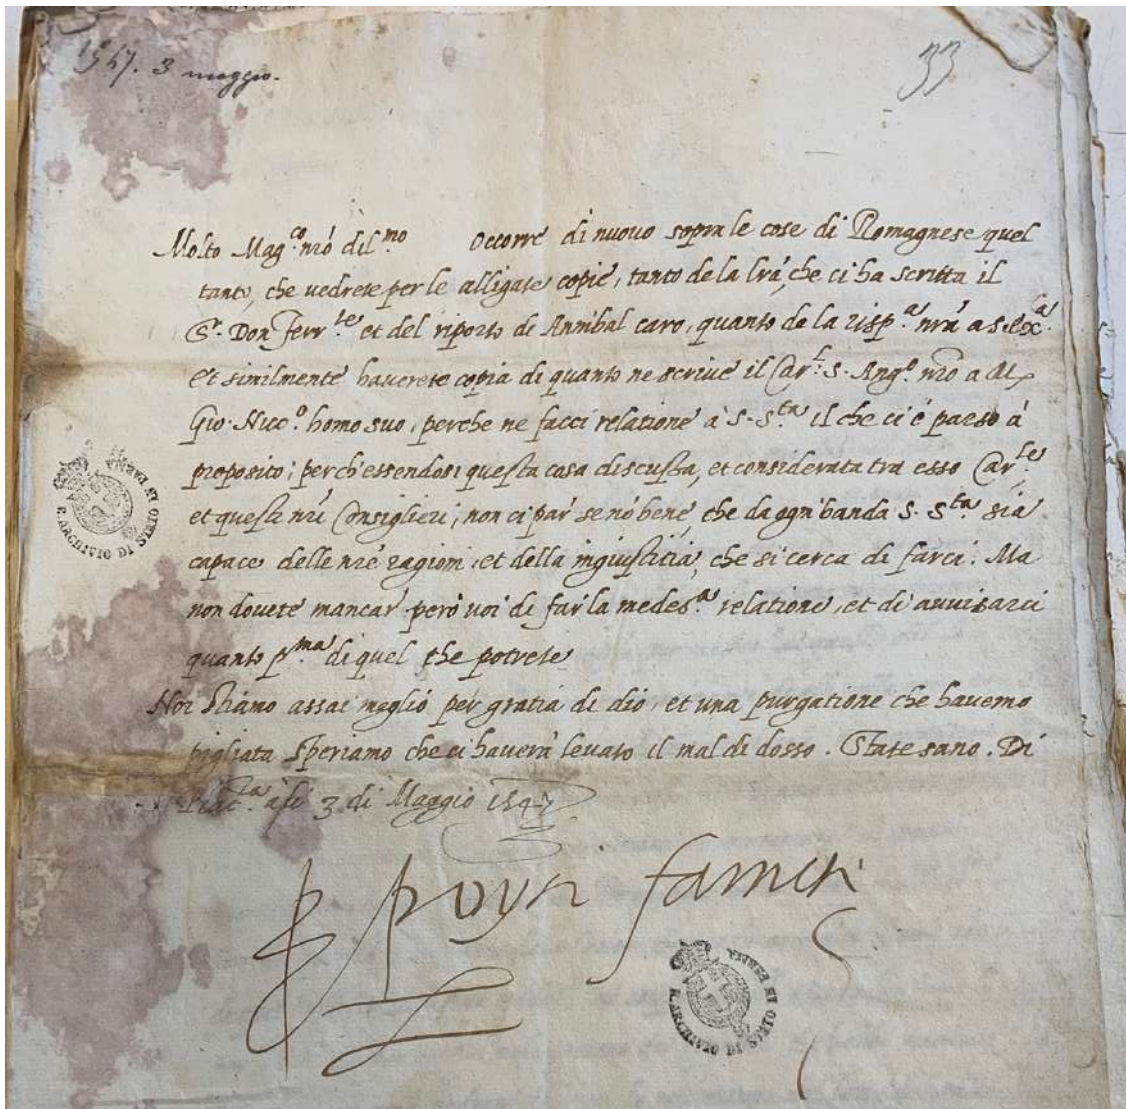 1547. 3 maggio.
33
Molto Mag.co nró dil.mo Occorre di nuovo sopra le cose di Romagnese quel
tanto, che vedrete per le alligate copie, tanto de la lrá, che ci ha scritta il
S.r Don Ferr.te et del riporto de Annibal caro, quanto de la risp.a nrá a S. Ex.a
Et similmente haverete copia di quanto ne scrive il Car.l S. Ang.o nró a M.
Gio. Nicc.o homo suo, perche ne facci relatione à S. S.ta il che ci é parso à
proposito; perch'essendosi questa cosa discussa, et considerata tra esso Car.le
et questi nrí Consiglieri, non ci par se nó bene, che da ogn'banda S. S.ta sia
capace delle nré ragioni, et della ingiustitia, che si cerca di farci. Ma
non dovete mancar però voi di far la medes.a relatione, et di avvisarci
quanto p.ma di quel che potrete
Noi stiamo assai meglio per gratia di dio, et una purgatione che havemo
pigliata speriamo che ci haverà levato il mal di dosso. State sano. Di
Piac.za à li 3 di Maggio 1547
R. ARCHIVIO DI STATO IN PARMA
R. ARCHIVIO DI STATO IN PARMA